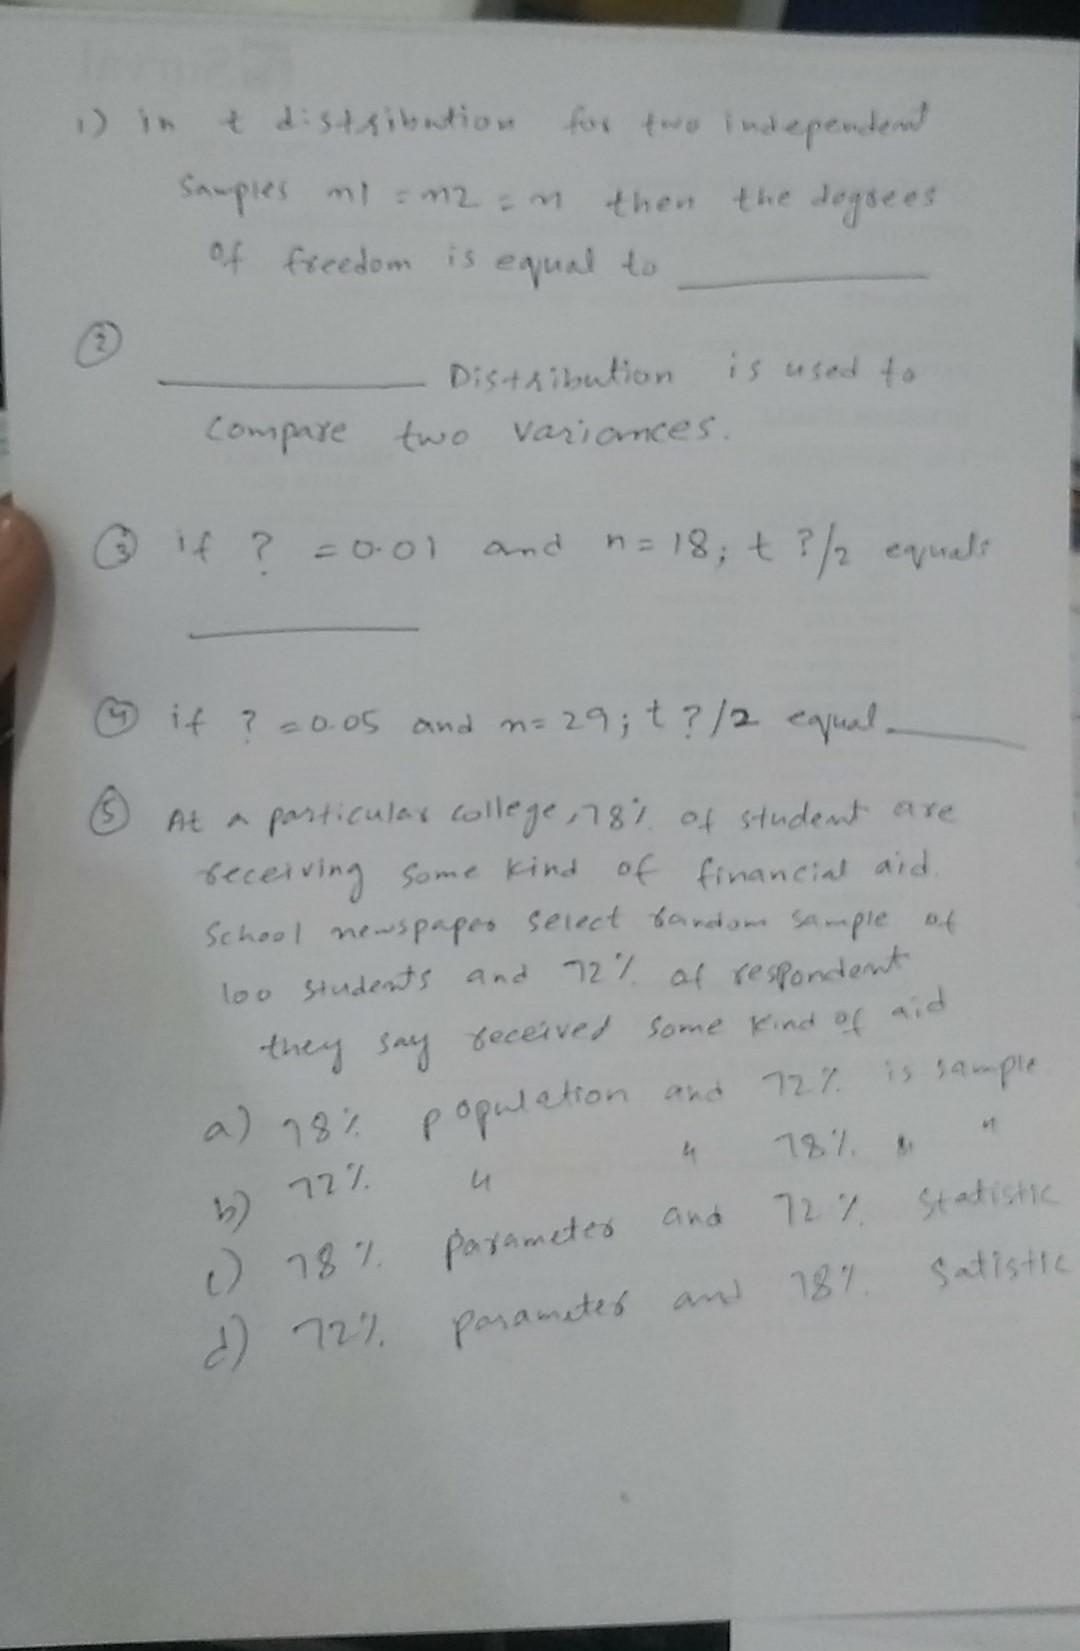 1) in t distribution for two independent
samples n1 = n2 = n then the degrees
of freedom is equal to ________
② ________ Distribution is used to
compare two variances.
③ if ? = 0.01 and n = 18; t ?/2 equals
________
④ if ? = 0.05 and n = 29; t ?/2 equal ________
⑤ At a particular college, 78% of student are
receiving some kind of financial aid.
School newspaper select random sample of
100 students and 72% of respondent
they say received some kind of aid
a) 78% population and 72% is sample
b) 72% " " 78% " "
c) 78% parameter and 72% statistic
d) 72% parameter and 78% satistic